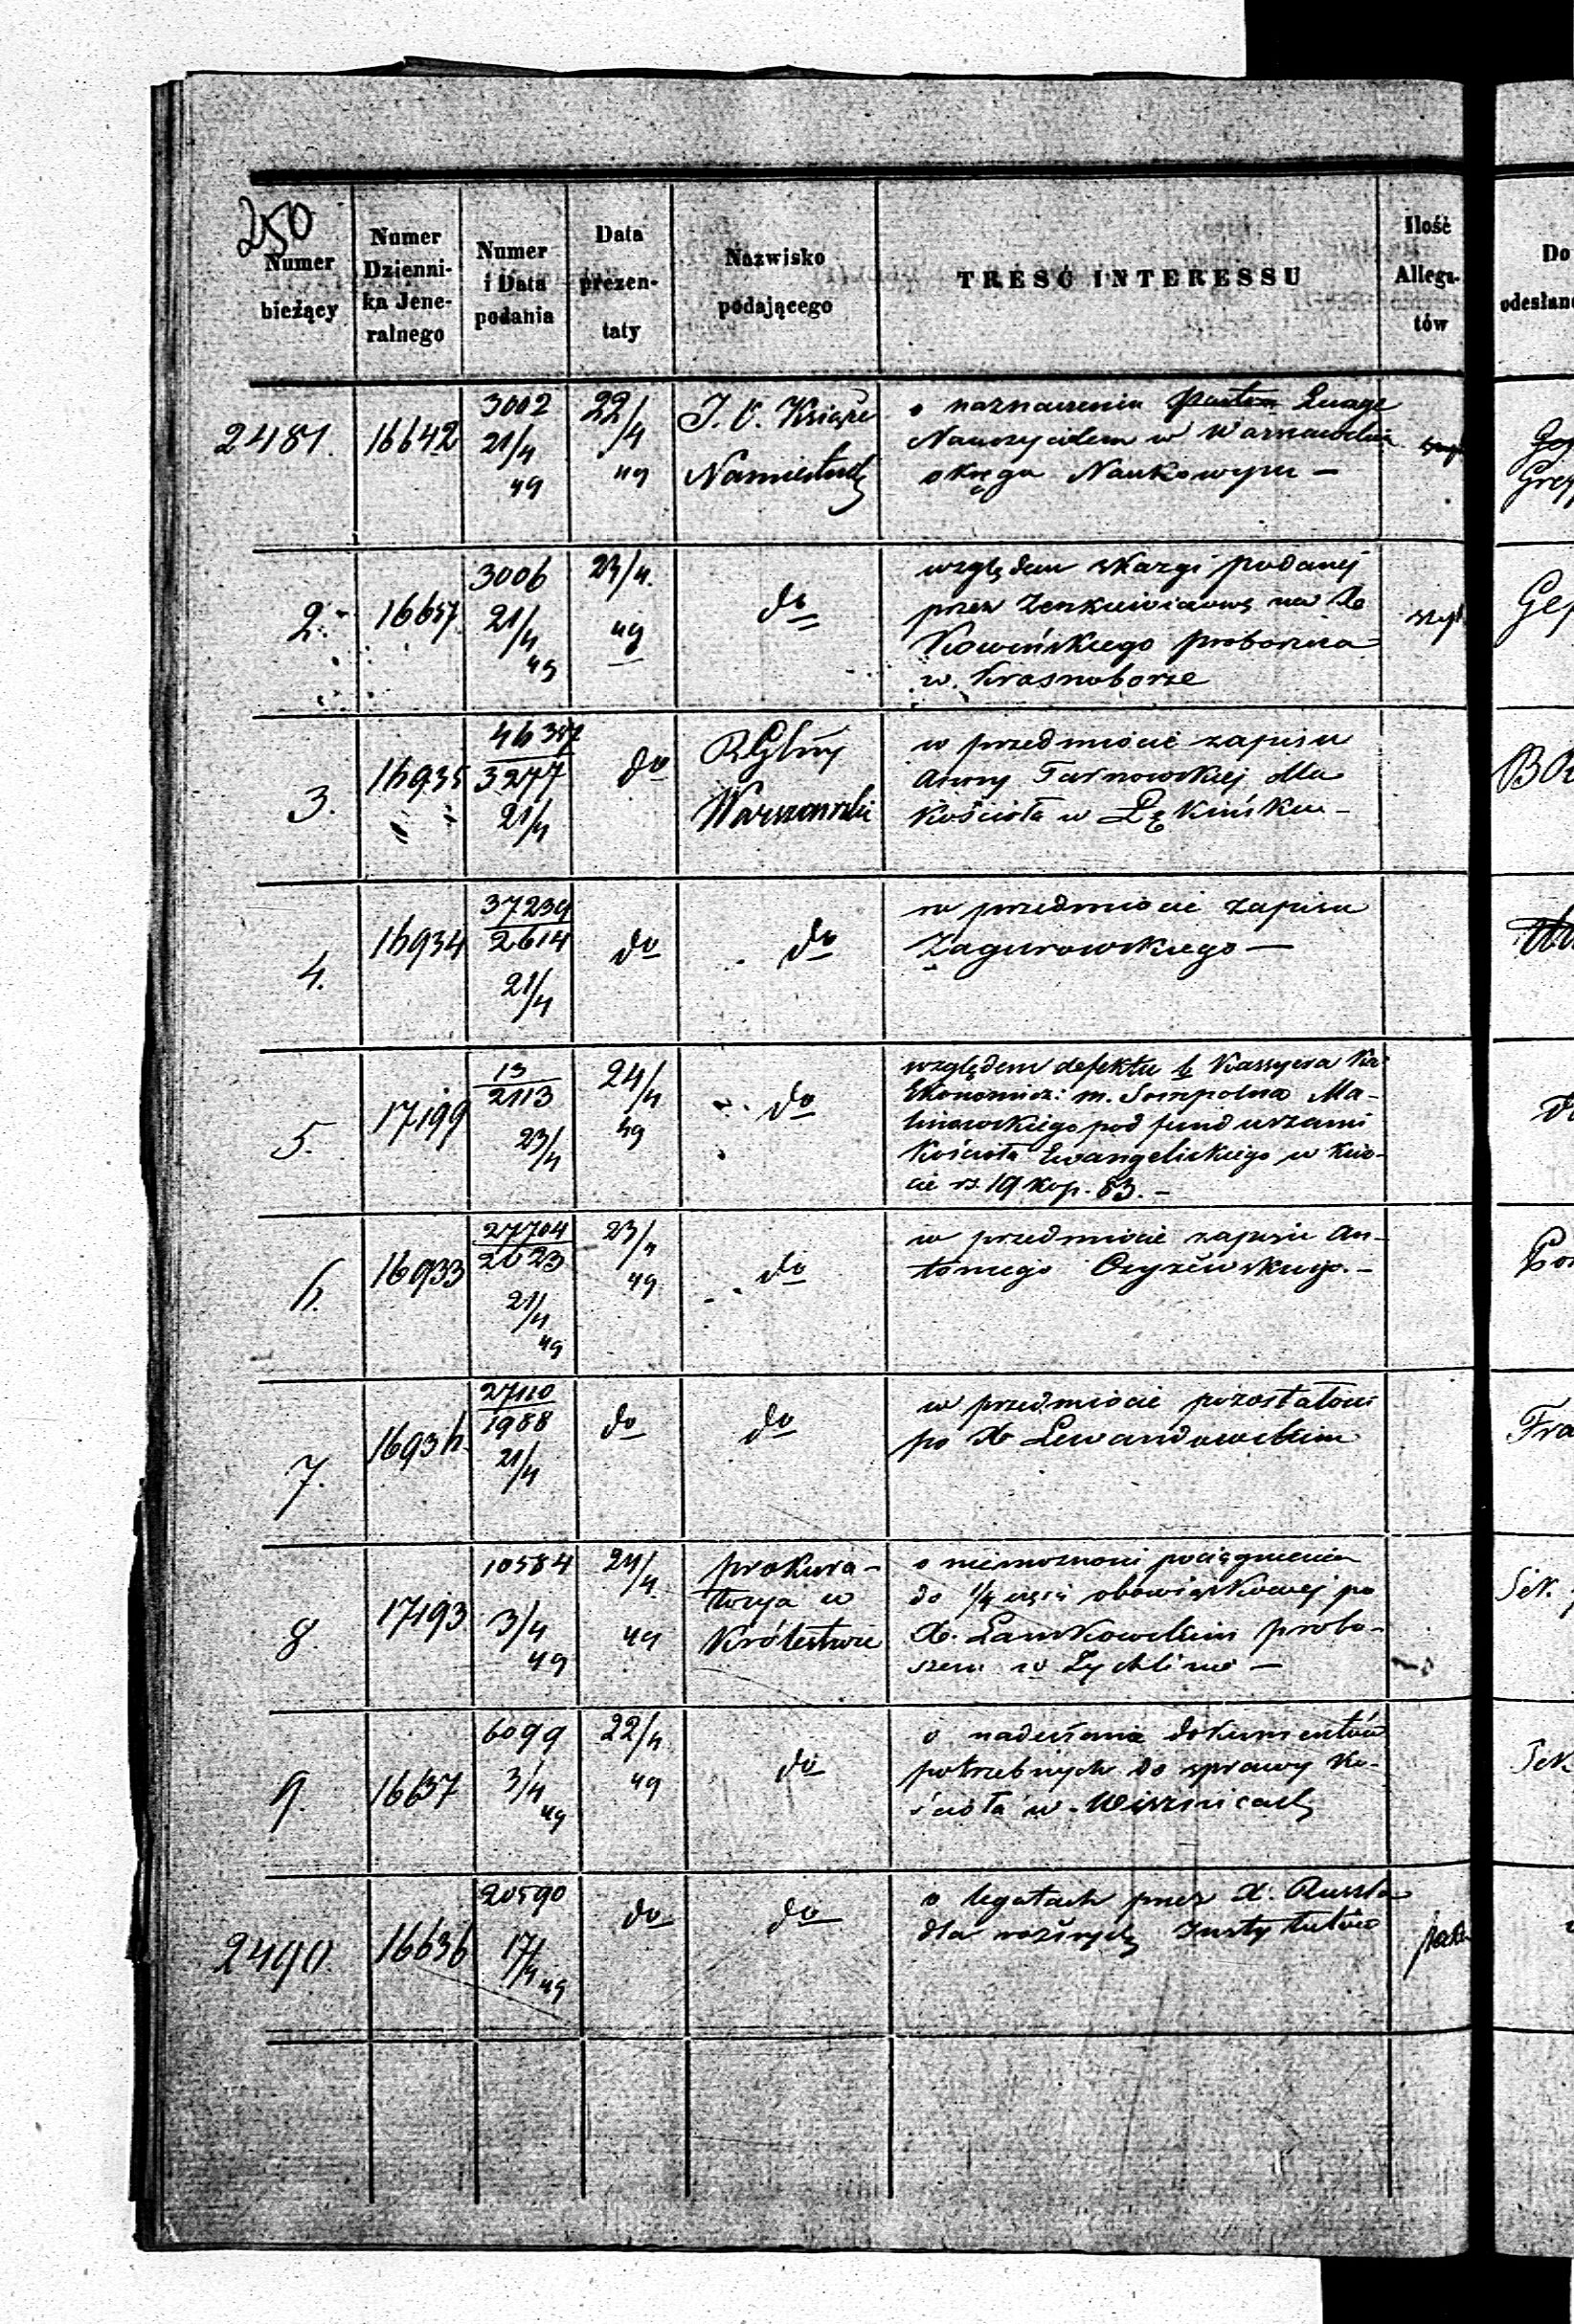 250
Numer
bieżący
Numer
Dzienni-
ka Jene-
ralnego
Numer
i Data
podania
Data
prezen-
taty
Nazwisko
podającego
TREŚĆ INTERESSU
Ilość
Allega-
tów
Do
odesłan
2481. 16642 3002 21/4 49 22/4 49 J. O. Książe Namiestnik
o naznaczeniu
Nauczycielem w Warszawskim
okręgu Naukowym —
2. 16657 3006 21/4 49 23/4. 49 do
względem skargi podanej
przez na X
Kowińskiego proboszcza
w Krasnoborze
3. 16935 46357 3277 21/4 do RGlny Warszawski
w przedmiocie zapisu
Anny Tarnowskiej dla
Kościoła w Lękińsku —
4. 16934 37239 2614 21/4 do do
w przedmiocie zapisu
Zagurowskiego —
5. 17199 13 2113 23/4 24/4 49 do
względem defektu b Kassyera Ka
Ekonomicz: m. Sompolna Ma-
linowskiego pod funduszami
Kościoła Ewangelickiego w
cie rs. 19 kop. 83. —
6. 16933 27704 2023 21/4 49 23/4 49 do
w przedmiocie zapisu An-
toniego —
7. 16936. 27110 1988 21/4 do do
w przedmiocie pozostałości
po X Lewandowskim
8. 17193 10584 3/4 49 24/4. 49 prokura-
torya w
Królestwie
o niemożności pociągnienia
do 1/4 części obowiązkowej po
X. Lamkowskim probo-
szczu w Żychlinie —
9. 16637 6099 3/4 49 22/4 49 do
o nadesłanie dokumentów
potrzebnych do sprawy Ko-
ścioła w
2490. 16636 20590 17/4 49 do do
o legatach przez X. Russla
dla różnych Instytutów